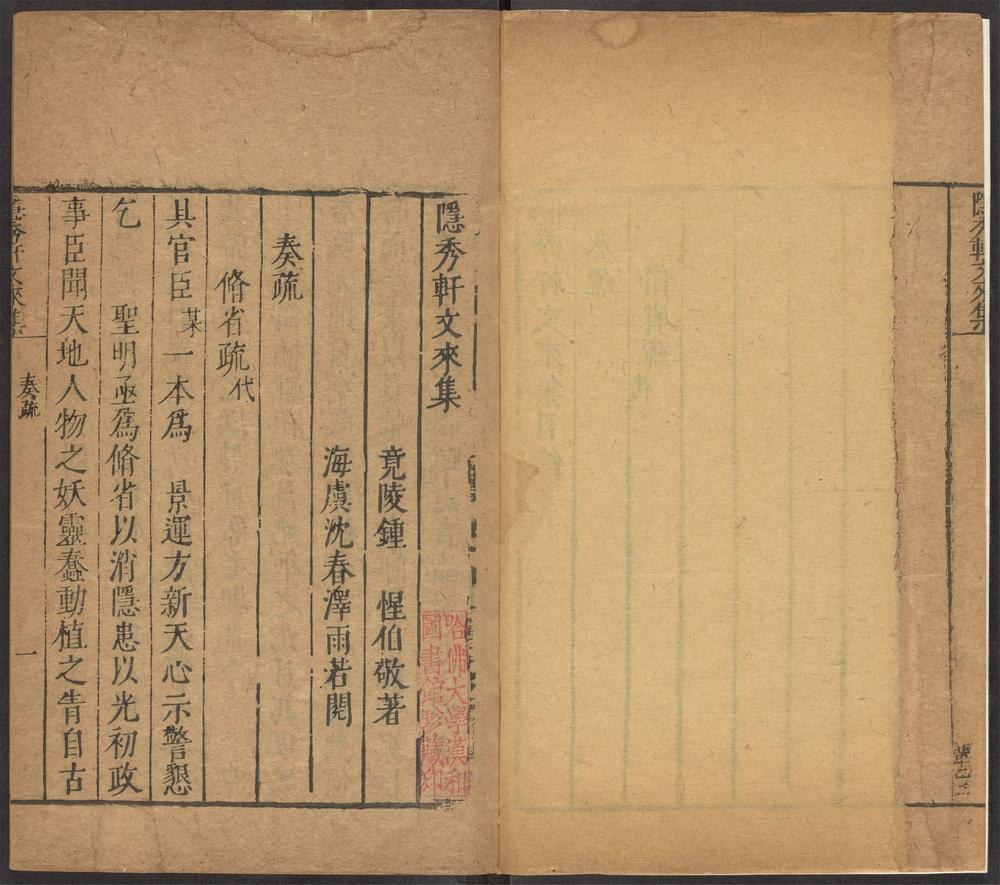 隱秀軒文來集
竟陵鍾　惺伯敬著
海虞沈春澤雨若閱
奏疏
脩省疏代
具官臣某一本爲　景運方新天心示警懇
乞
聖明亟爲脩省以消隱患以光初政
事臣聞天地人物之妖靈蠢動植之眚自古
隱秀軒文來集
奏疏
一
哈佛大學漢和
圖書館珍藏印